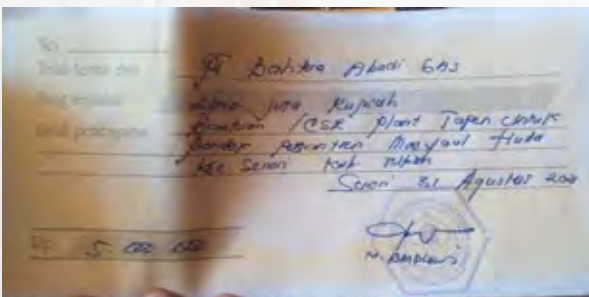 No.
Telah terima dari PT Bahtera Abadi Gas
Uang sejumlah Lima juta Rupiah
Untuk pembayaran Bantuan /CSR Plant Tapen Untuk
Pondok Pesantren Huda
Kec. Senori Kab
Senori 31 Agustus
Rp. 5.000.000